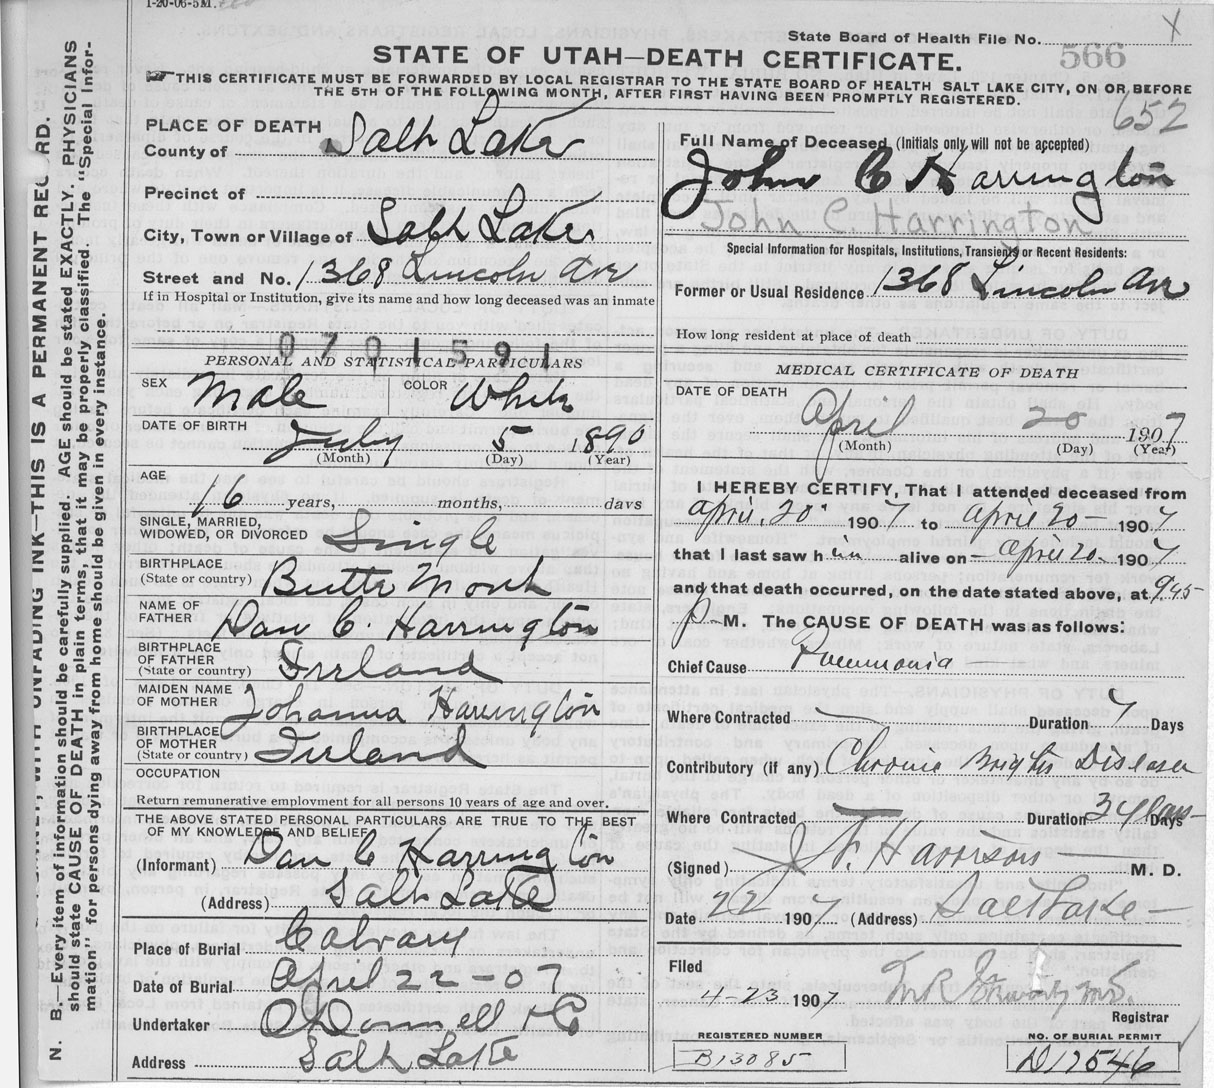 1-20-06-5M.
State Board of Health File No. 566
X
STATE OF UTAH—DEATH CERTIFICATE.
THIS CERTIFICATE MUST BE FORWARDED BY LOCAL REGISTRAR TO THE STATE BOARD OF HEALTH SALT LAKE CITY, ON OR BEFORE
THE 5TH OF THE FOLLOWING MONTH, AFTER FIRST HAVING BEEN PROMPTLY REGISTERED.
652
N. B.—Every item of information should be carefully supplied. AGE should be stated EXACTLY. PHYSICIANS
should state CAUSE OF DEATH in plain terms, that it may be properly classified. The "Special Infor-
mation" for persons dying away from home should be given in every instance.
WITH UNFADING INK—THIS IS A PERMANENT RECORD.
PLACE OF DEATH
County of Salt Lake
Precinct of
City, Town or Village of Salt Lake
Street and No. 1368 Lincoln Ave
If in Hospital or Institution, give its name and how long deceased was an inmate
0701591
PERSONAL AND STATISTICAL PARTICULARS
SEX Male COLOR White
DATE OF BIRTH July 5 1890
(Month) (Day) (Year)
AGE 16 years, months, days
SINGLE, MARRIED,
WIDOWED, OR DIVORCED Single
BIRTHPLACE
(State or country) Butte Mont
NAME OF
FATHER Dan C Harrington
BIRTHPLACE
OF FATHER
(State or country) Irland
MAIDEN NAME
OF MOTHER Johanna Harrington
BIRTHPLACE
OF MOTHER
(State or country) Irland
OCCUPATION
Return remunerative employment for all persons 10 years of age and over.
THE ABOVE STATED PERSONAL PARTICULARS ARE TRUE TO THE BEST
OF MY KNOWLEDGE AND BELIEF
(Informant) Dan C Harrington
(Address) Salt Lake
Place of Burial Calvary
Date of Burial April 22-07
Undertaker O'Donnell & Co
Address Salt Lake
Full Name of Deceased (Initials only will not be accepted)
John C Harrington
John C. Harrington
Special Information for Hospitals, Institutions, Transients or Recent Residents:
Former or Usual Residence 1368 Lincoln Ave
How long resident at place of death
MEDICAL CERTIFICATE OF DEATH
DATE OF DEATH April 20 1907
(Month) (Day) (Year)
I HEREBY CERTIFY, That I attended deceased from
April. 20 1907 to April 20 - 1907
that I last saw him alive on April 20. 1907
and that death occurred, on the date stated above, at 9.45
p M. The CAUSE OF DEATH was as follows:
Chief Cause Pneumonia
Where Contracted Duration 7 Days
Contributory (if any) Chronic Brights Disease
Where Contracted Duration 3 years Days
(Signed) M. D.
Date 22 1907 (Address) Salt Lake
Filed
4-23 1907
Registrar
REGISTERED NUMBER
B13085
NO. OF BURIAL PERMIT
D17546